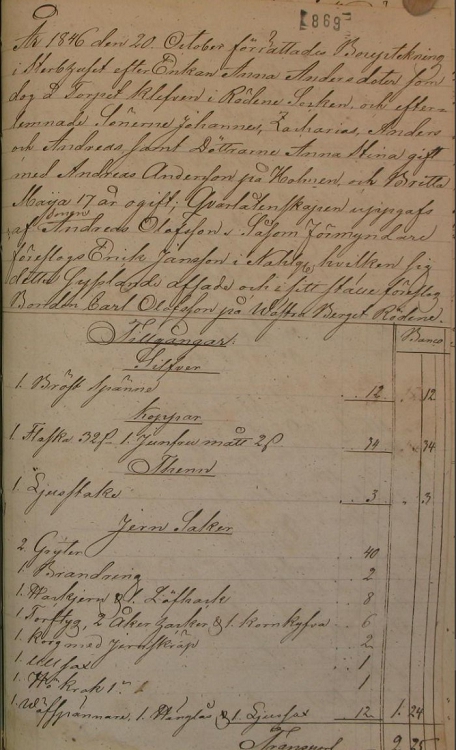 1869
År 1846 den 20. October förrättades Bouptekning
i Sterbhuset efter Enkan Anna Andersdoter, som
dog å Torpet klefven i Rödene Socken, och efter-
lemnade Sönerne Johannes, Zacharias, Anders
och Andreas, samt Döttrarne Anna Stina gift
med Andreas Anderson på Holmen, och Britta
Maija 17 år ogift; Qvarlåtenskapen uppgafs
af Sonen Andreas Olofsson. Såsom Förmyndare
föreslogs Erick Jansson i hvilken sig
detta afsade och i sitt ställe föreslog
Bonden Carl Olofsson på Wästra Berget Rödene.
Tillgångar. Banco
Silfver
1. Bröst spänne 12 12
Koppar
1. Flaska 32ß 1. Junfru mått 2ß 34 34
Thenn
1. Ljusstake 3 3
Jern Saker
2 Grytor 40
1. Brandring 2
1. & 1. Löfhark 8
1. 2 Åker & 1. 6
1. korg med jernskräp 2
1. Ullsax 1
1. Hö krok 1
1. 1. & 1. Ljussax 12 1. 24
Transport 2 25